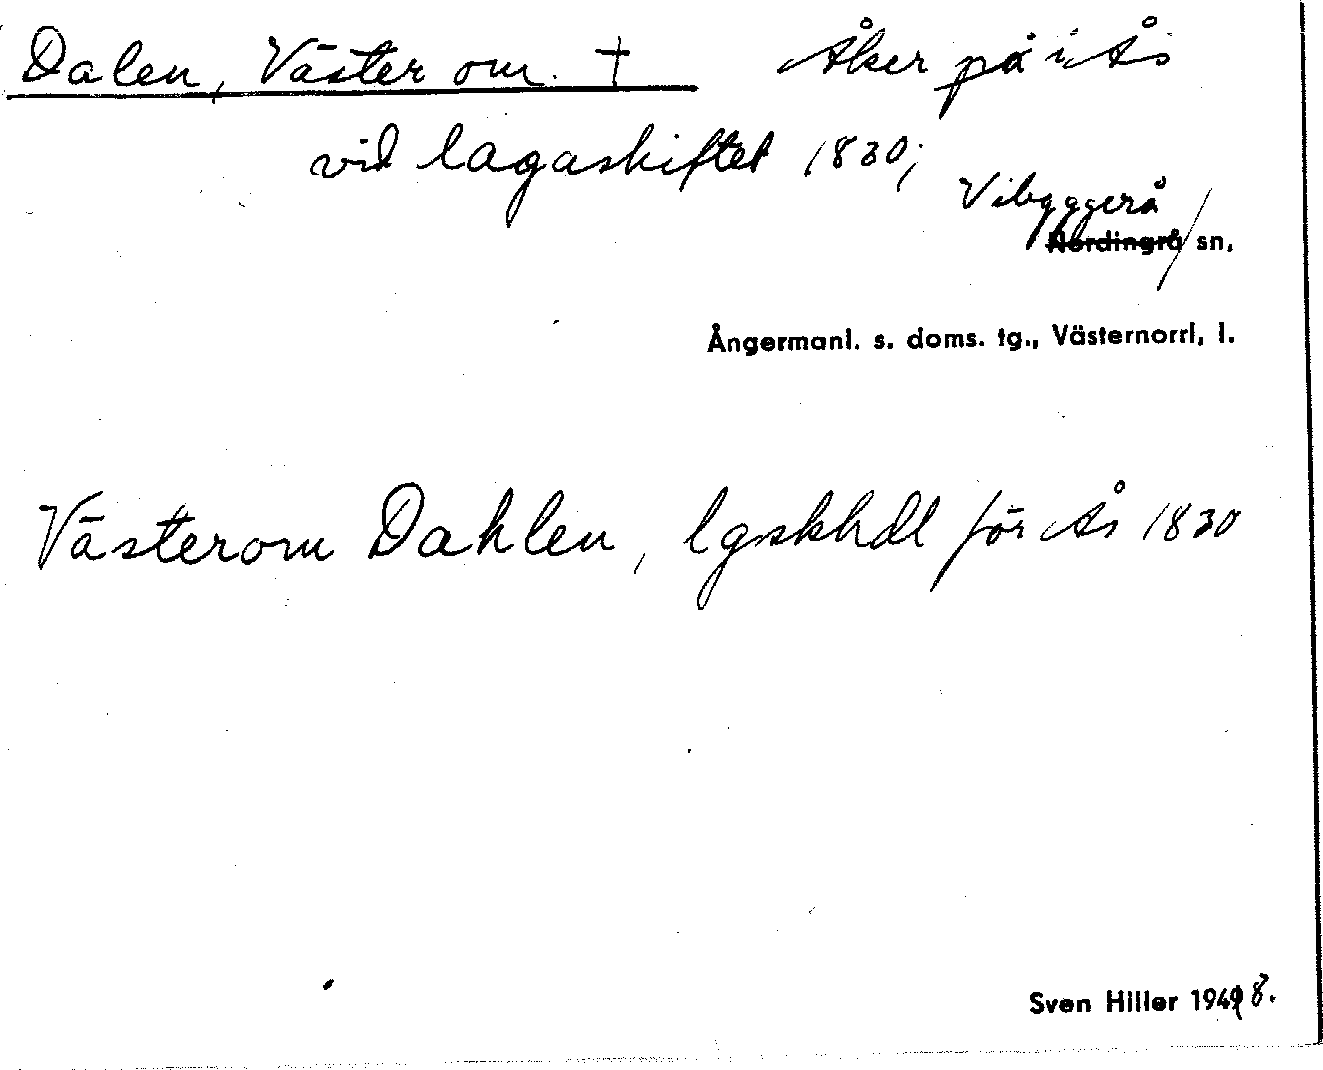 Dalen, Väster om. † Åker på i Ås
vid lagaskiftet 1830;
Vibyggerå
Nordingrå / sn.
Ångermanl. s. doms. tg., Västernorrl. l.
Västerom Dahlen, lgskhdl för Ås 1830
Sven Hiller 1948.